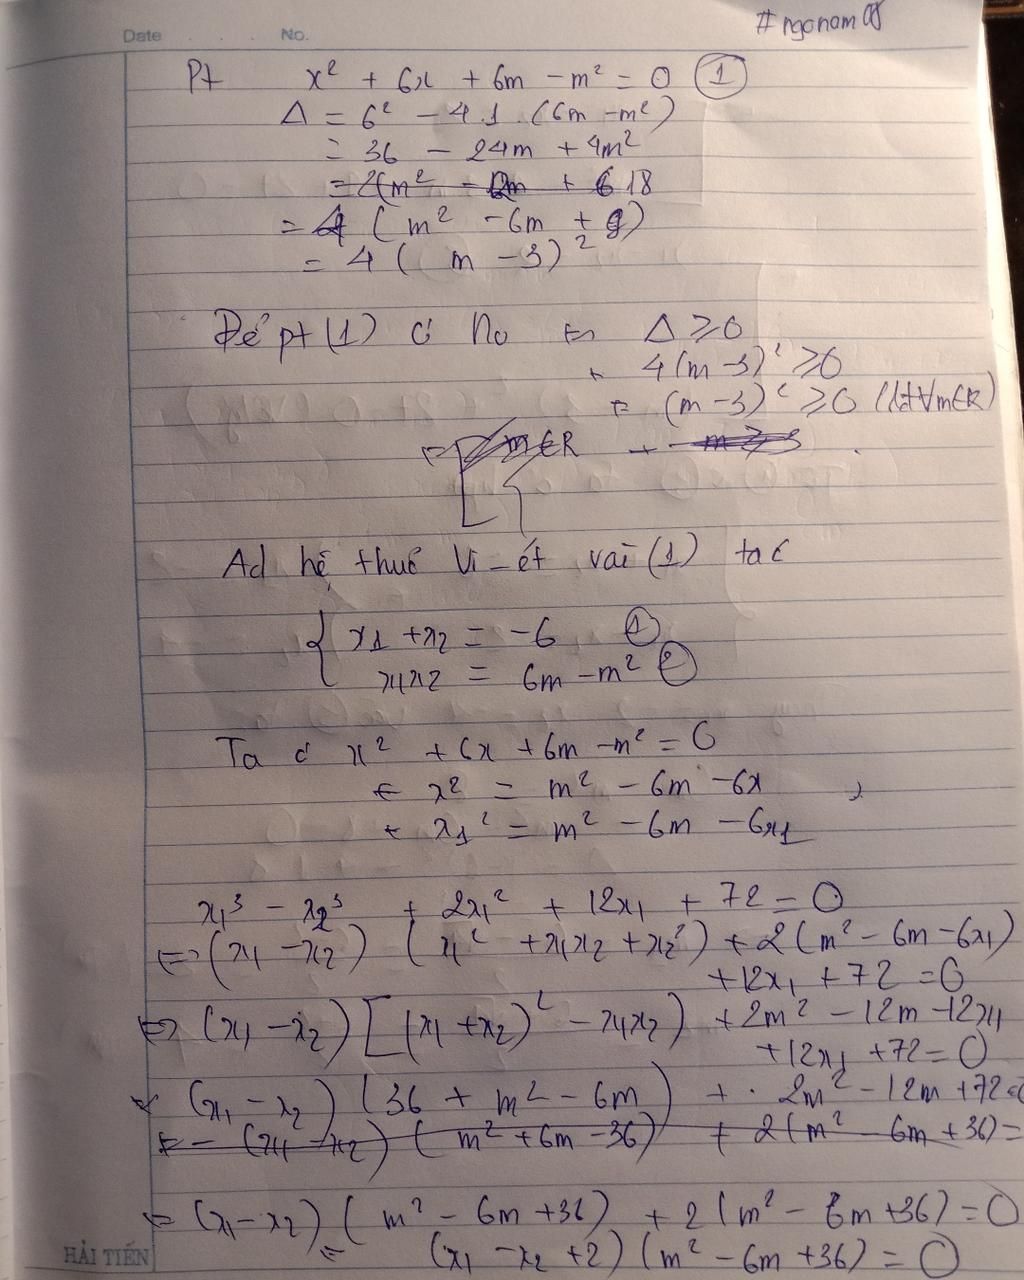 #ngonam08
Date No.
Pt x² + 6x + 6m - m² = 0 (1)
Δ = 6² - 4.1.(6m - m²)
= 36 - 24m + 4m²
= 4(m² - 6m + 9)
= 4(m - 3)²
Để pt(1) có no <=> Δ ≥ 0
4(m - 3)² ≥ 0
(m - 3)² ≥ 0 (lđ ∀m∈R)
m∈R
Ad hệ thuc Vi-ét vài (1) ta c
{ x1 + x2 = -6 (1)
x1x2 = 6m - m² (2)
Ta c x² + 6x + 6m - m² = 0
x² = m² - 6m - 6x
x1² = m² - 6m - 6x1
x1³ - x2³ + 2x1² + 12x1 + 72 = 0
<=> (x1 - x2)(x1² + x1x2 + x2²) + 2(m² - 6m - 6x1)
+ 12x1 + 72 = 0
<=> (x1 - x2)[(x1 + x2)² - x1x2) + 2m² - 12m - 12x1
+ 12x1 + 72 = 0
(x1 - x2)(36 + m² - 6m) + 2m² - 12m + 72 = 0
- (x1 - x2)(m² + 6m - 36) + 2(m² - 6m + 36) =
(x1 - x2)(m² - 6m + 36) + 2(m² - 6m + 36) = 0
(x1 - x2 + 2)(m² - 6m + 36) = 0
HẢI TIẾN